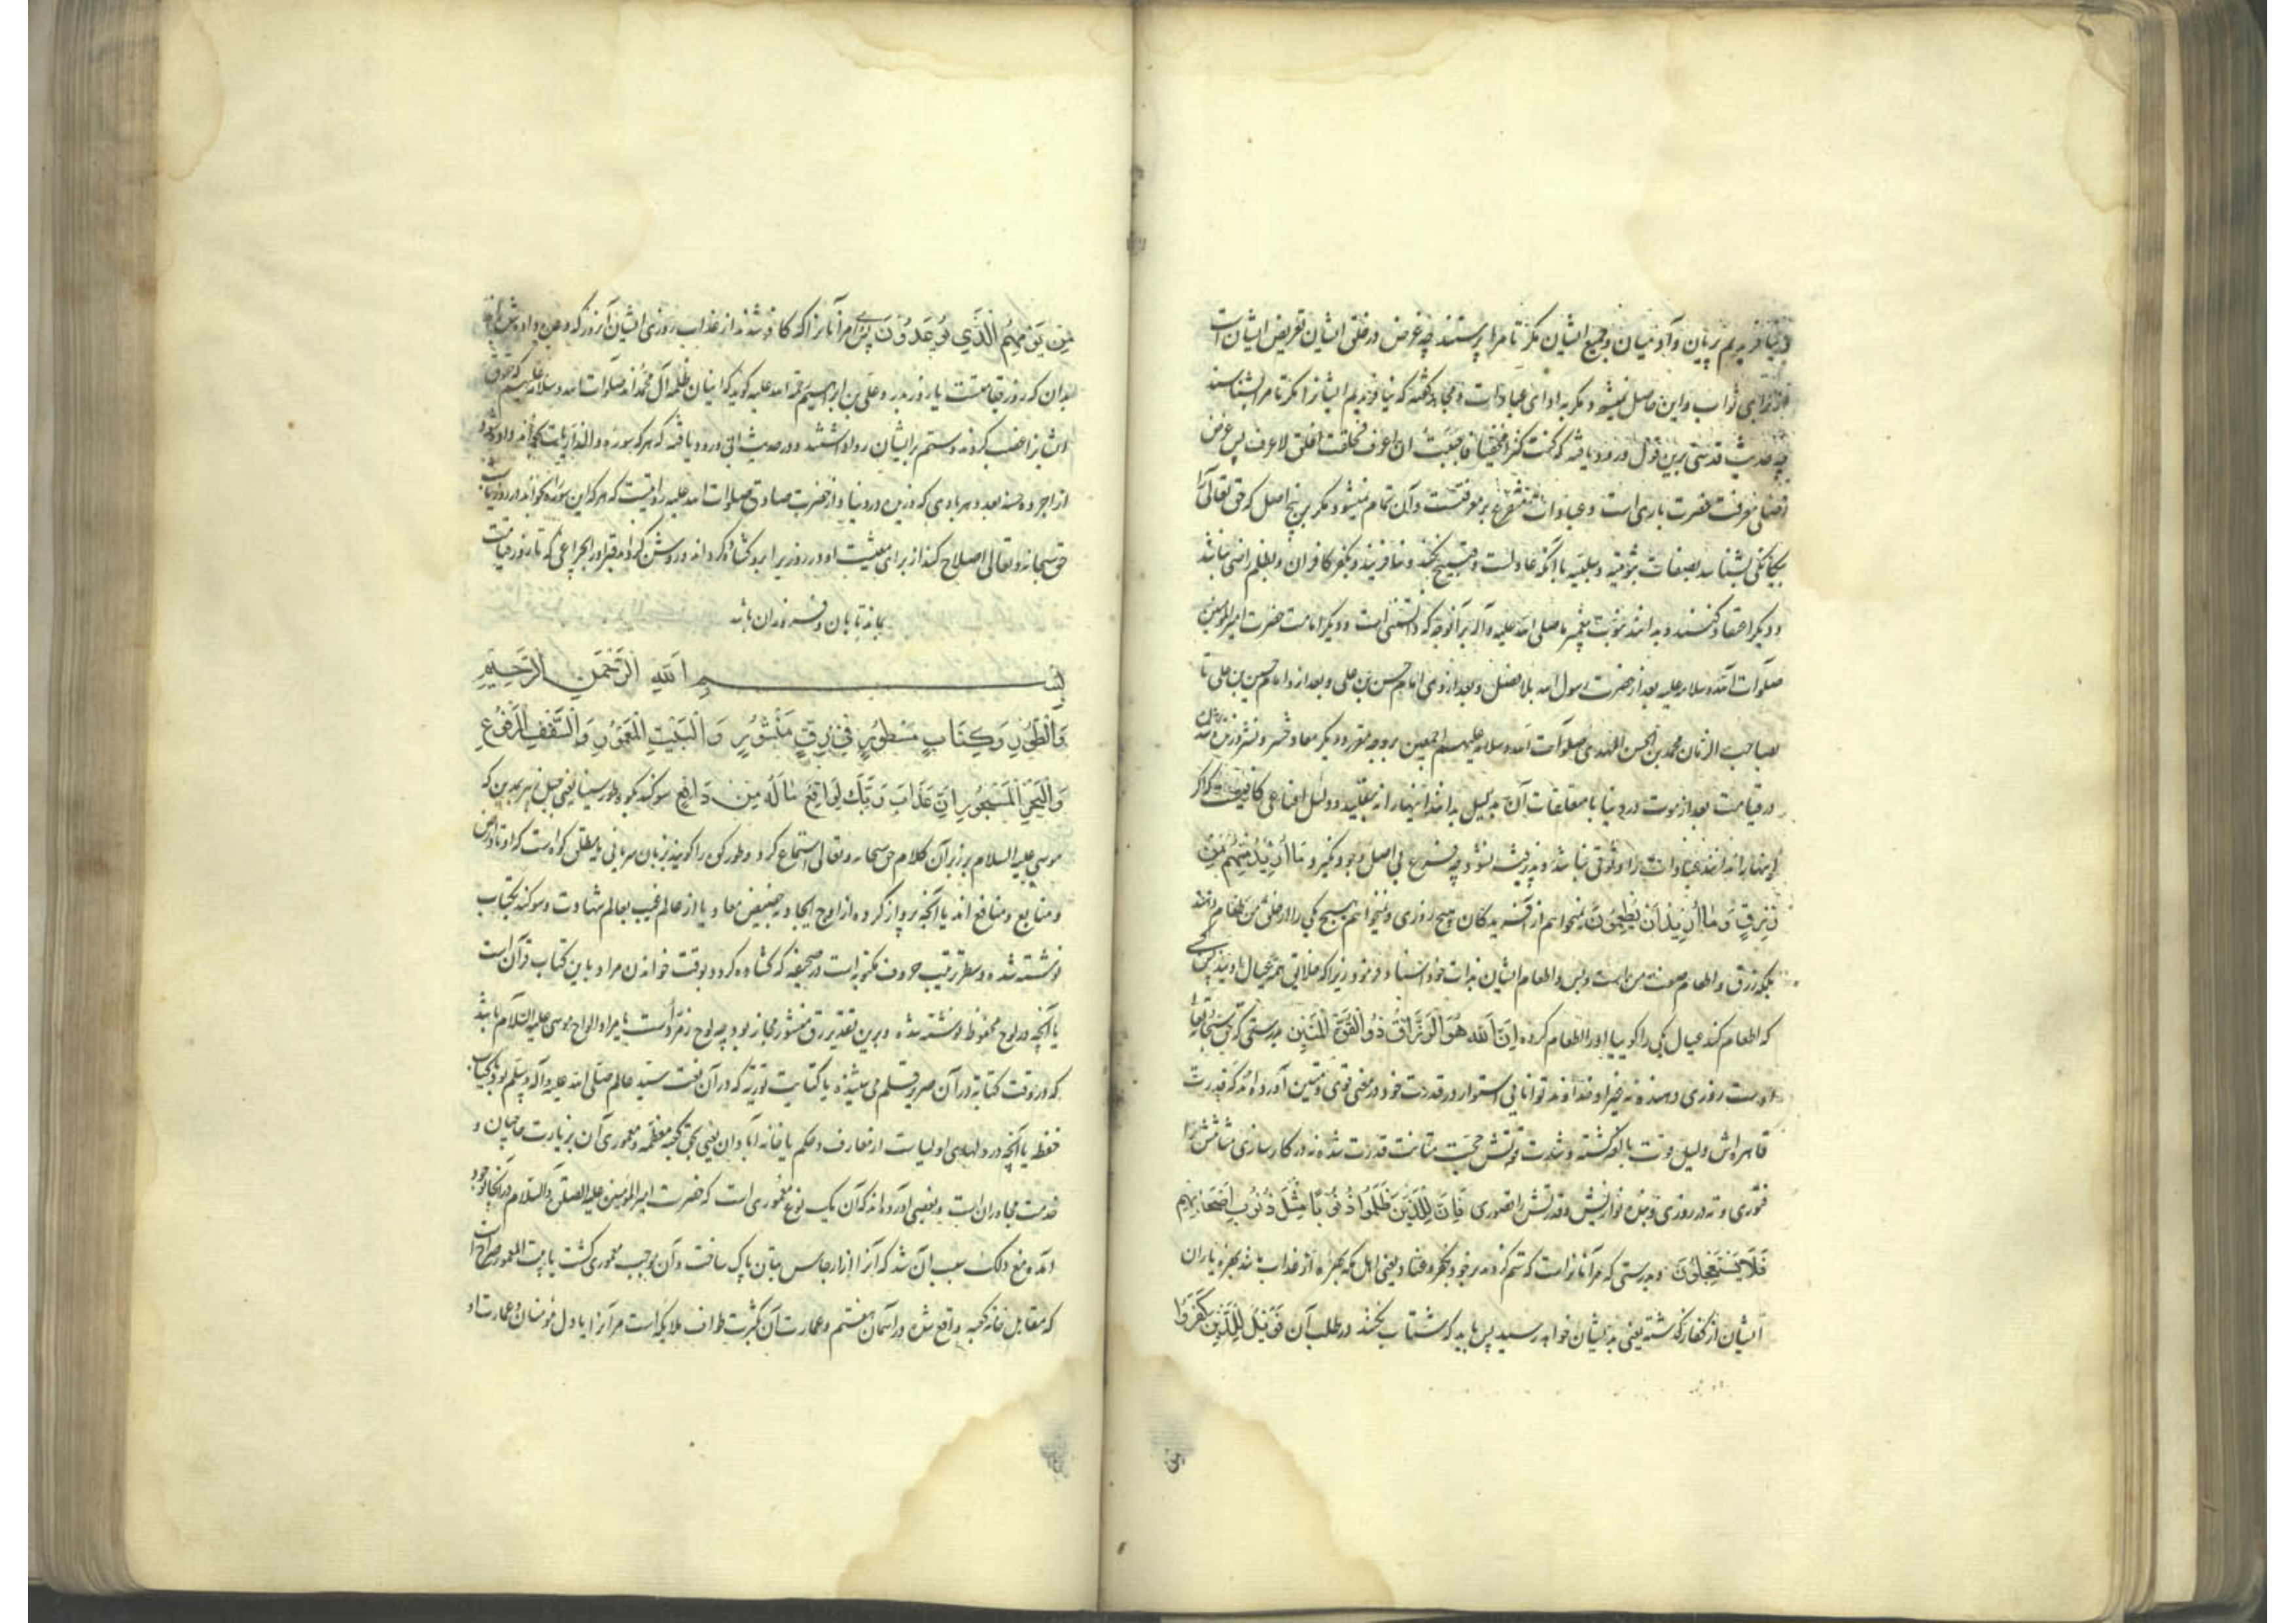 و نیافریدیم پریان و آدمیان و جمیع ایشان مگر تا مرا پرستند چه غرض در خلق ایشان تعریض ایشان است
از برای ثواب و این حاصل نمیشود مگر به ادای عبادات و مجاهد گفته که نیافریدیم ایشانرا مگر تا مرا بشناسند
چه حدیث قدسی برین قول ورود یافته که کنت کنزا مخفیا فاحببت ان اعرف فخلقت الخلق لاعرف پس غرض
اقصی معرفت حضرت باری است و عبادات متفرع بر معرفتست و آن تمام نمیشود مگر به پنج اصل که حق تعالی را
بیگانگی بشناسد بصفات ثبوتیه و سلبیه با آنکه عادلست و قبیح نکند و نیافریند و بکفر کافران و بظلم راضی نباشد
و دیگر اعتقاد کنند و بدانند نبوت پیغمبر ما صلی الله علیه و آله بر آنوجه که دانستنی است و دیگر امامت حضرت امیرالمؤمنین
صلوات الله و سلامه علیه بعد از حضرت رسول الله بلا فصل و بعد از وی امام حسن بن علی و بعد از و امام حسین بن علی تا
بصاحب الزمان محمد بن الحسن المهدی صلوات الله و سلامه علیهم اجمعین بر وجه مقرر و دیگر معاد و حشر و نشر
در قیامت بعد از موت در دنیا با متعلقات آن بدلیل بدانند اینها را نه بتقلید و دلیل اقناعی کافیست که اگر
اینها را ندانند عبادات را وثوقی نباشد و پذیرفته نشود چه فرع بی اصل وجود نگیرد مَا أُرِيدُ مِنْهُمْ مِنْ
رِزْقٍ وَمَا أُرِيدُ أَنْ يُطْعِمُونِ نمیخواهم از آفریدگان هیچ روزی و نمیخواهم هیچ یکی را از خلق من طعام دهند
بلکه رزق و اطعام صفت من است و بس و اطعام ایشان بذات خود اسناد فرمود زیرا که خلایق همه عیال اویند پس کسی
که اطعام کند عیال یکی را گوییا او را اطعام کرده إِنَّ اللَّهَ هُوَ الرَّزَّاقُ ذُو الْقُوَّةِ الْمَتِينُ بدرستی که حق سبحانه و تعالی
اوست روزی دهنده نه غیر او خداوند توانایی استوار در قدرت خود در معنی قوی و متین آورده اند که قدرت
قاهره اش دلیل قوت بالغ گشته و شدت قوتش حجت متانت قدرت شده نه در کار سازی متانتش را
فتوری و نه در روزی و بنده نوازیش و قدرتش را قصوری فَإِنَّ لِلَّذِينَ ظَلَمُوا ذَنُوبًا مِثْلَ ذَنُوبِ أَصْحَابِهِمْ
فَلَا يَسْتَعْجِلُونِ و بدرستی که مر آنانراست که ستم کردند بر خود بکفر و عناد یعنی اهل مکه بهره از عذاب مانند بهره یاران
ایشان از کفار گذشته یعنی بدیشان خواهد رسید پس باید که شتاب نکنند در طلب آن فَوَيْلٌ لِلَّذِينَ كَفَرُوا
مِنْ يَوْمِهِمُ الَّذِي يُوعَدُونَ پس مر آنانرا که کافر شدند از عذاب روزی ایشان آنروز که وعده داده شده اند
بدان که روز قیامتست یا روز بدر و علی بن ابراهیم رحمة الله علیه گوید که اینان ظلمه آل محمد اند صلوات الله و سلامه علیهم که حقوق
ایشانرا غصب کردند و ستم بر ایشان روا داشتند و در حدیث ابی ورود یافته که هر که سوره والذاریات بخواند داده شود
از اجر ده حسنه بعدد هر بادی که وزیده در دنیا و از حضرت صادق صلوات الله علیه روایتست که هر که این سوره بخواند در روز یا شب
حق سبحانه و تعالی اصلاح کند از برای معیشت او و در روزی را برو گشاده گرداند و روشن گرداند قبر او را بچراغی که تا روز قیامت
بماند تابان و فروزان باشد
بِسْمِ اللهِ الرَّحْمَنِ الرَّحِيمِ
وَالطُّورِ وَكِتَابٍ مَسْطُورٍ فِي رَقٍّ مَنْشُورٍ وَالْبَيْتِ الْمَعْمُورِ وَالسَّقْفِ الْمَرْفُوعِ
وَالْبَحْرِ الْمَسْجُورِ إِنَّ عَذَابَ رَبِّكَ لَوَاقِعٌ مَا لَهُ مِنْ دَافِعٍ سوکند بکوه طور سینا یعنی جبل زبیر بمدین که
موسی علیه السلام بر زبر آن کلام حق سبحانه و تعالی استماع کرد و طور کوه را گویند بزبان سریانی یا مطلق کوه است که اوتاد ارض
و منابع و منافع اند یا آنچه پرواز کرده از اوج ایجاد به حضیض معاد یا از عالم غیب بعالم شهادت و سوکند بکتاب
نوشته شده و سطر ترتیب حروف مکتوبه است در صحیفه که گشاده گردد بوقت خواندن مراد باین کتاب قرآن است
یا آنچه در لوح محفوظ نوشته شده و برین تقدیر رق منشور مجاز بود چه لوح زمرد است یا مراد الواح موسی علیه السلام باشد
که در وقت کتابه در آن صریر قلم می شنیده یا کتابت توریة که در آن نعت سید عالم صلی الله علیه و آله و سلم بود یا کتاب
حفظه یا آنچه در دلهای اولیاست از معارف و حکم یا خانه آبادان یعنی بحق کعبه معظمه و معموری آن بزیارت حاجیان و
خدمت مجاوران است و بعضی آورده اند که آن یک نوع معموری است که حضرت امیرالمؤمنین علیه الصلوة والسلام در آنجا بوجود
آمده مع ذلک سبب آن شد که آنرا از ارجاس بتان پاک ساخت و آن موجب معموری گشت یا بیت المعمور صراح است
که مقابل خانه کعبه واقع شده در آسمان هفتم و عمارت آن کثرت طواف ملایکه است مر آنرا یا دل مؤمنان و عمارت او